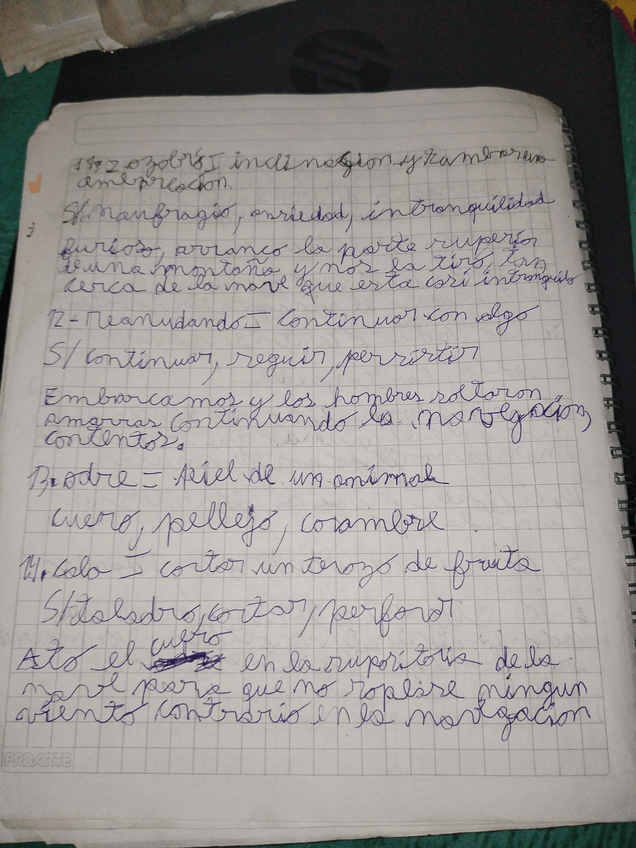 11- Zozobró= inclinacion y
embarcacion.
S/. naufragio, anriedad, intranquilidad
3
furioso, arranco la parte ruperior
de una montaña y nos la tiró, tan
cerca de la nave que esta cari intranquilo
12- Reanudando= continuar con algo
S/ continuar, reguir, perristir
Embarcamos y los hombres roltaron
amarras continuando la navegacion,
contentos.
13. odre= piel de un animal
cuero, pellejo, corambre
14. cala= cortar un trozo de fruta
S/ taladro, cortar, perforar
cuero
Ató el en la de la
nave para que no roplare ningun
viento contrario en la navegacion
PROARTE
hp